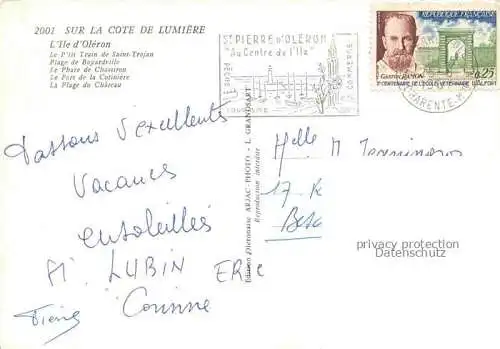 2001 SUR LA COTE DE LUMIÈRE
L'Ile d'Oléron
Le P'tit Train de Saint-Trojan
Plage de Boyardville
Le Phare de Chassiron
Le Port de la Cotinière
La Plage du Château
ST PIERRE D'OLERON
"Au Centre de l'Ile"
PECHE
COMMERCE
TOURISME
RÉPUBLIQUE FRANÇAISE
GASTON RAMON
2e CENTENAIRE DE L'ECOLE VETERINAIRE D'ALFORT
0,25
CHARENTE-M
Edition d'Oléronaise ARJAC-PHOTO - L. GRANDSART
Reproduction interdite
Passons d'excellentes
Vacances
ensoleillées
LUBIN ERic
Pierre Corinne
Melle M
17 R
privacy protection
Datenschutz